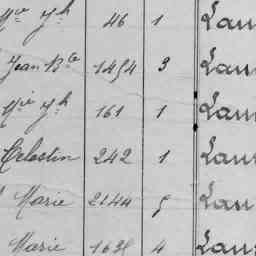 Jh 46 1 Lau
Jean Bte 1454 3 Lau
Jh 161 1 Lau
Celestin 242 1 Lau
Marie 2144 5 Lau
Marie 1635 4 Lau